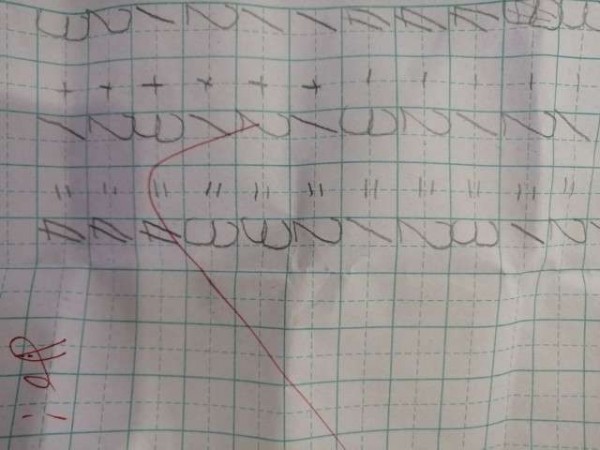 3-1=2
3-2=1
4-1=3
4-2=2
4-3=1
1+1=2
1+2=3
2+1=3
1+3=4
2+2=4
3+1=4